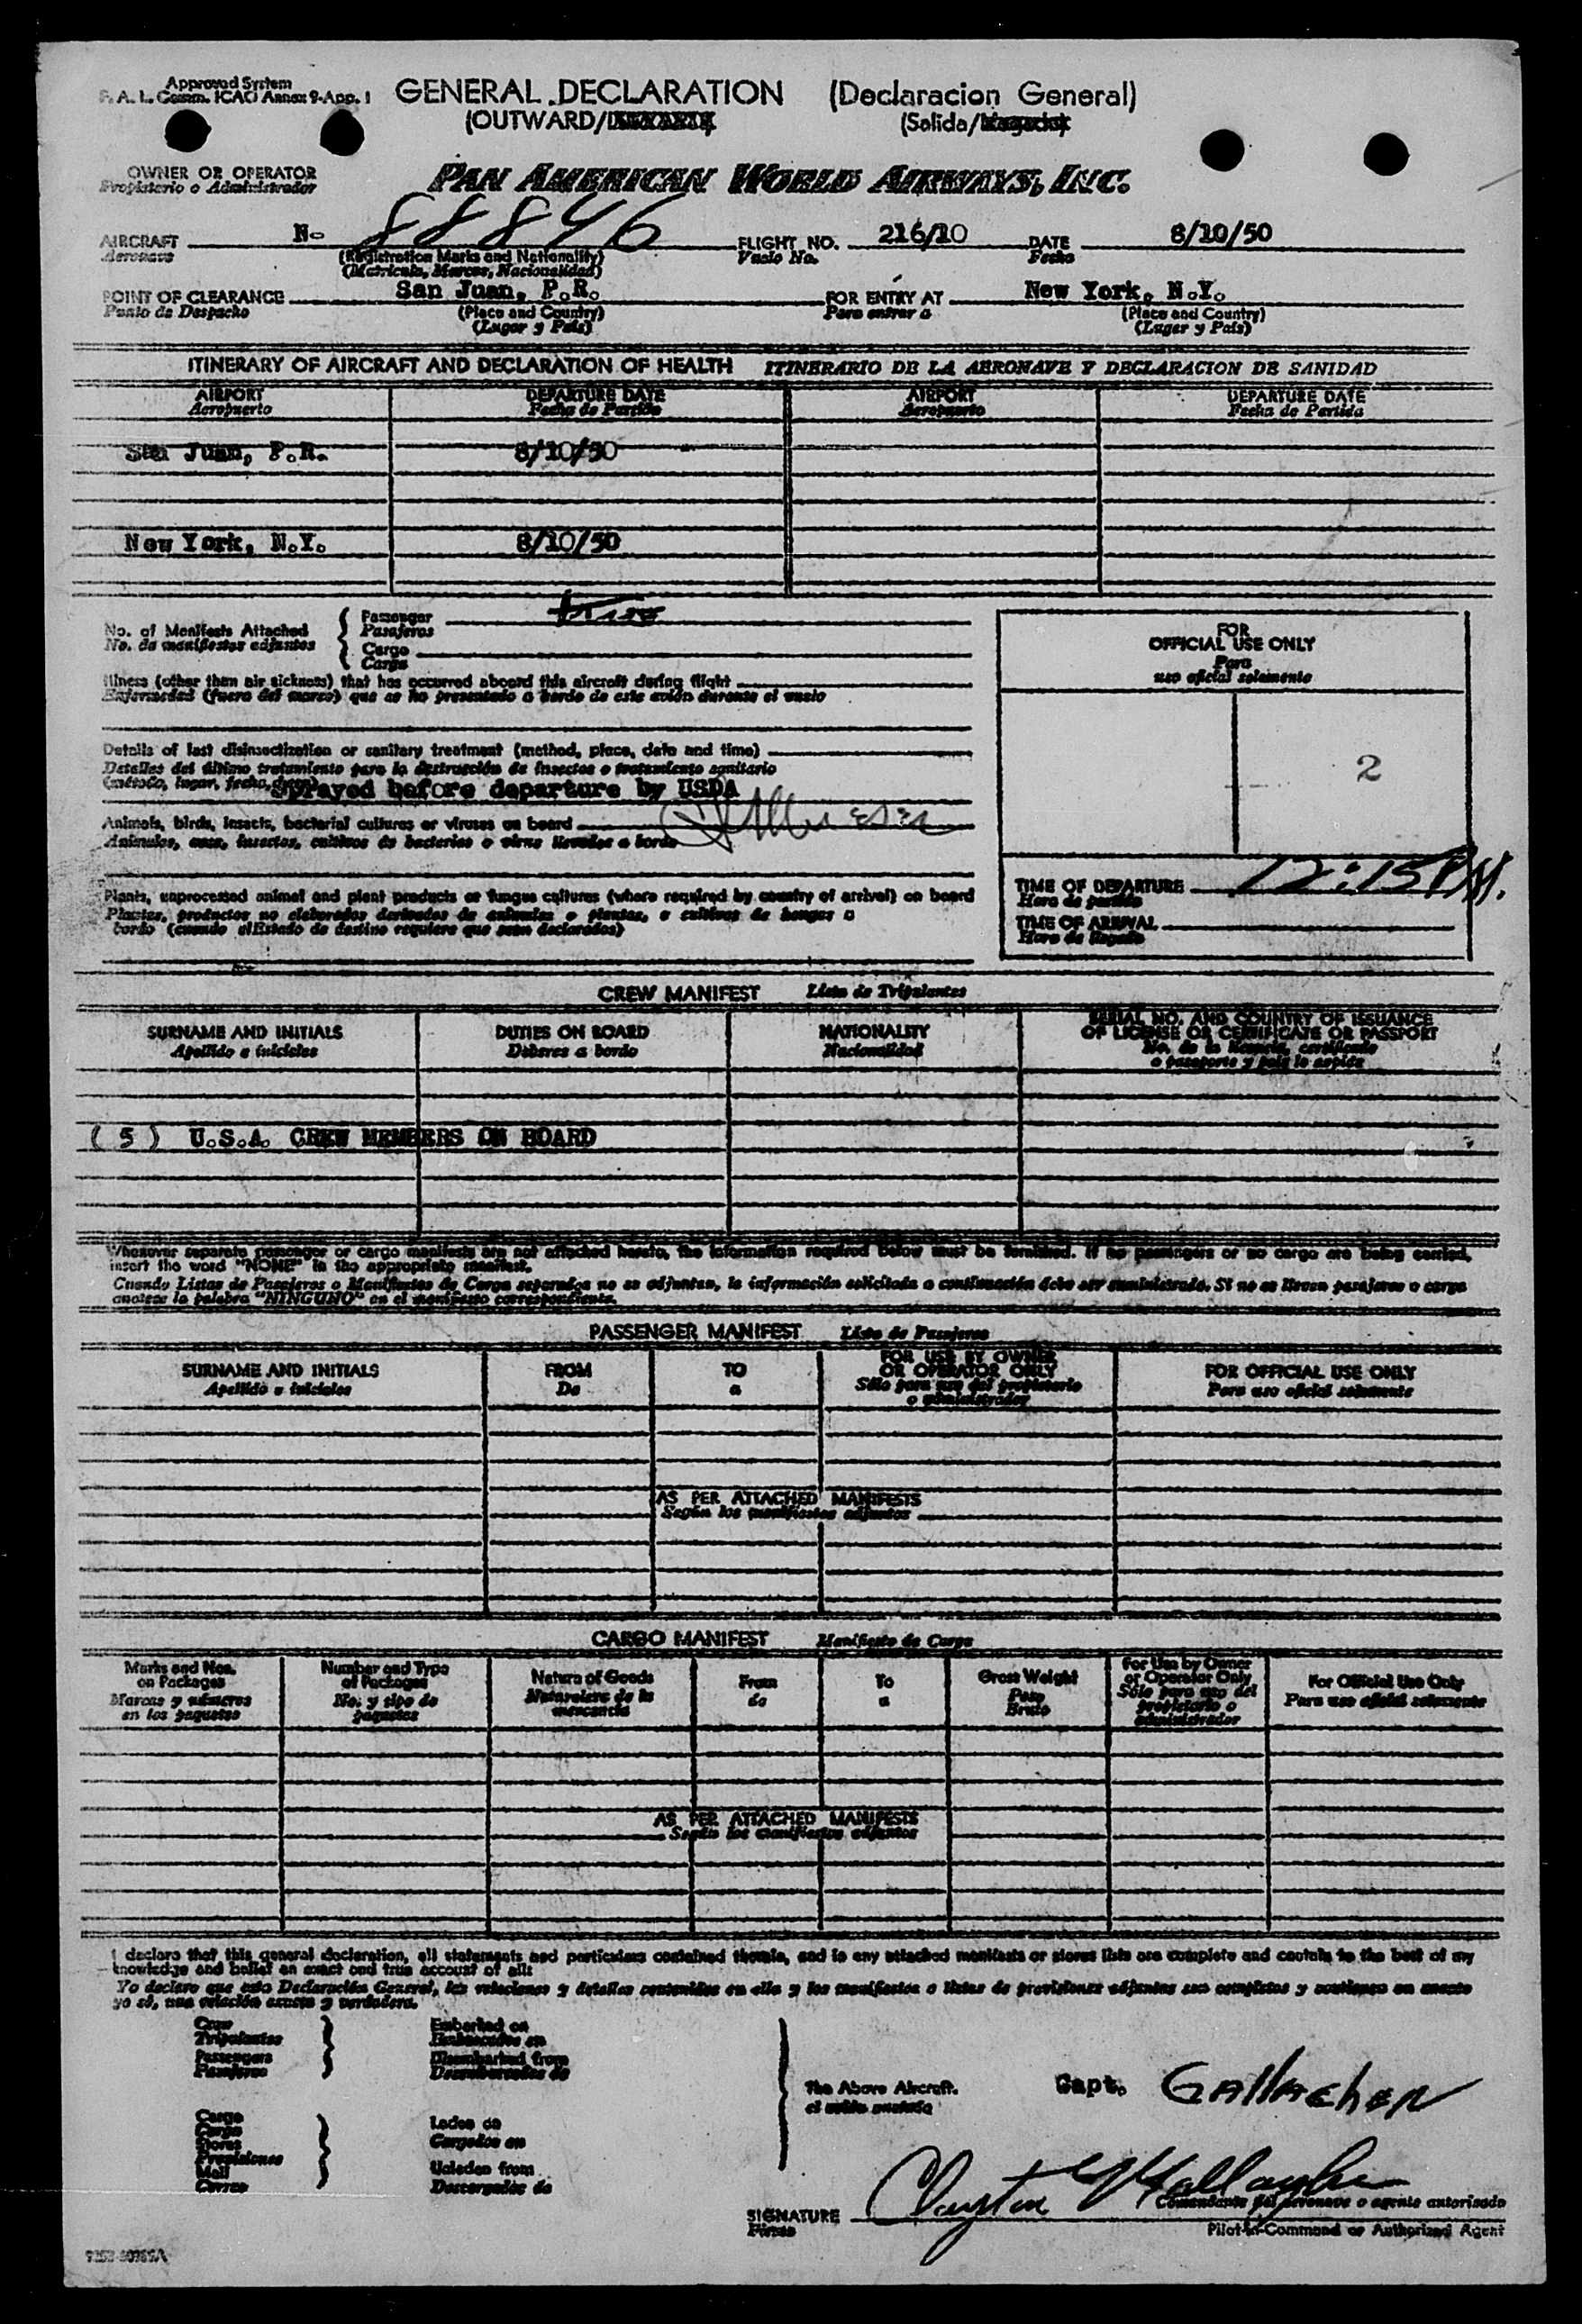 Approved System
F. A. L. Comm. ICAO Annex 9-App. 1
GENERAL DECLARATION (Declaracion General)
(OUTWARD/
(Salida/
OWNER OR OPERATOR
Propietario o Administrador
PAN AMERICAN WORLD AIRWAYS, INC.
AIRCRAFT N- 88846 FLIGHT NO. 216/10 DATE 8/10/50
Aeronave (Registration Marks and Nationality) Vuelo No. Fecha
(Matricula, Marcas, Nacionalidad)
POINT OF CLEARANCE San Juan, P.R. FOR ENTRY AT New York, N.Y.
Punto de Despacho (Place and Country) Para entrar a (Place and Country)
(Lugar y País) (Lugar y País)
ITINERARY OF AIRCRAFT AND DECLARATION OF HEALTH ITINERARIO DE LA AERONAVE Y DECLARACION DE SANIDAD
AIRPORT DEPARTURE DATE AIRPORT DEPARTURE DATE
Aeropuerto Fecha de Partida Aeropuerto Fecha de Partida
San Juan, P.R. 8/10/50
New York, N.Y. 8/10/50
No. of Manifests Attached
No. de manifiestos adjuntos
Passenger
Pasajeros
Cargo
Carga
FOR
OFFICIAL USE ONLY
Para
uso oficial solamente
2
Illness (other than air sickness) that has occurred aboard this aircraft during flight
Enfermedad (fuera del mareo) que se ha presentado a bordo de este avión durante el vuelo
Details of last disinsectization or sanitary treatment (method, place, date and time)
Detalles del último tratamiento para la destrucción de insectos o tratamiento sanitario
(método, lugar, fecha, hora)
Sprayed before departure by USDA
Animals, birds, insects, bacterial cultures or viruses on board
Animales, aves, insectos, cultivos de bacterias o virus llevados a bordo
Plants, unprocessed animal and plant products or fungus cultures (where required by country of arrival) on board
Plantas, productos no elaborados derivados de animales o plantas, o cultivos de hongos a
bordo (cuando el Estado de destino requiere que sean declarados)
TIME OF DEPARTURE 12:15 PM.
Hora de partida
TIME OF ARRIVAL
Hora de llegada
CREW MANIFEST Lista de Tripulantes
SURNAME AND INITIALS DUTIES ON BOARD NATIONALITY SERIAL NO. AND COUNTRY OF ISSUANCE
OF LICENSE OR CERTIFICATE OR PASSPORT
Apellido e iniciales Deberes a bordo Nacionalidad No. de la licencia, certificado
o pasaporte y país lo expide
( 5 ) U.S.A. CREW MEMBERS ON BOARD
Whenever separate passenger or cargo manifests are not attached hereto, the information required below must be furnished. If no passengers or no cargo are being carried,
insert the word "NONE" in the appropriate manifest.
Cuando Listas de Pasajeros o Manifiestos de Carga separados no se adjuntan, la información solicitada a continuación debe ser suministrada. Si no se llevan pasajeros o carga
anotese la palabra "NINGUNO" en el manifiesto correspondiente.
PASSENGER MANIFEST Lista de Pasajeros
SURNAME AND INITIALS FROM TO FOR USE BY OWNER
OR OPERATOR ONLY FOR OFFICIAL USE ONLY
Apellido e iniciales De a Sólo para uso del propietario
o administrador Para uso oficial solamente
AS PER ATTACHED MANIFESTS
Según los manifiestos adjuntos
CARGO MANIFEST Manifiesto de Carga
Marks and Nos.
on Packages
Marcas y números
en los paquetes
Number and Type
of Packages
No. y tipo de
paquetes
Nature of Goods
Naturaleza de la
mercancía
From
de
To
a
Gross Weight
Peso
Bruto
For Use by Owner
or Operator Only
Sólo para uso del
propietario o
administrador
For Official Use Only
Para uso oficial solamente
AS PER ATTACHED MANIFESTS
Según los manifiestos adjuntos
I declare that this general declaration, all statements and particulars contained therein, and in any attached manifests or stores lists are complete and contain to the best of my
knowledge and belief an exact and true account of all:
Yo declaro que esta Declaración General, las relaciones y detalles contenidos en ella y los manifiestos o listas de provisiones adjuntas son completos y contienen en cuanto
yo sé, una relación exacta y verdadera.
Crew
Tripulantes
Passengers
Pasajeros
Embarked on
Embarcados en
Disembarked from
Desembarcados de
Cargo
Carga
Stores
Provisiones
Mail
Correo
Laden on
Cargados en
Unladen from
Descargados de
The Above Aircraft.
el avión anotado
Capt. GALLAGHER
SIGNATURE Clayton Gallagher
Firma
Comandante del aeronave o agente autorizado
Pilot-in-Command or Authorized Agent